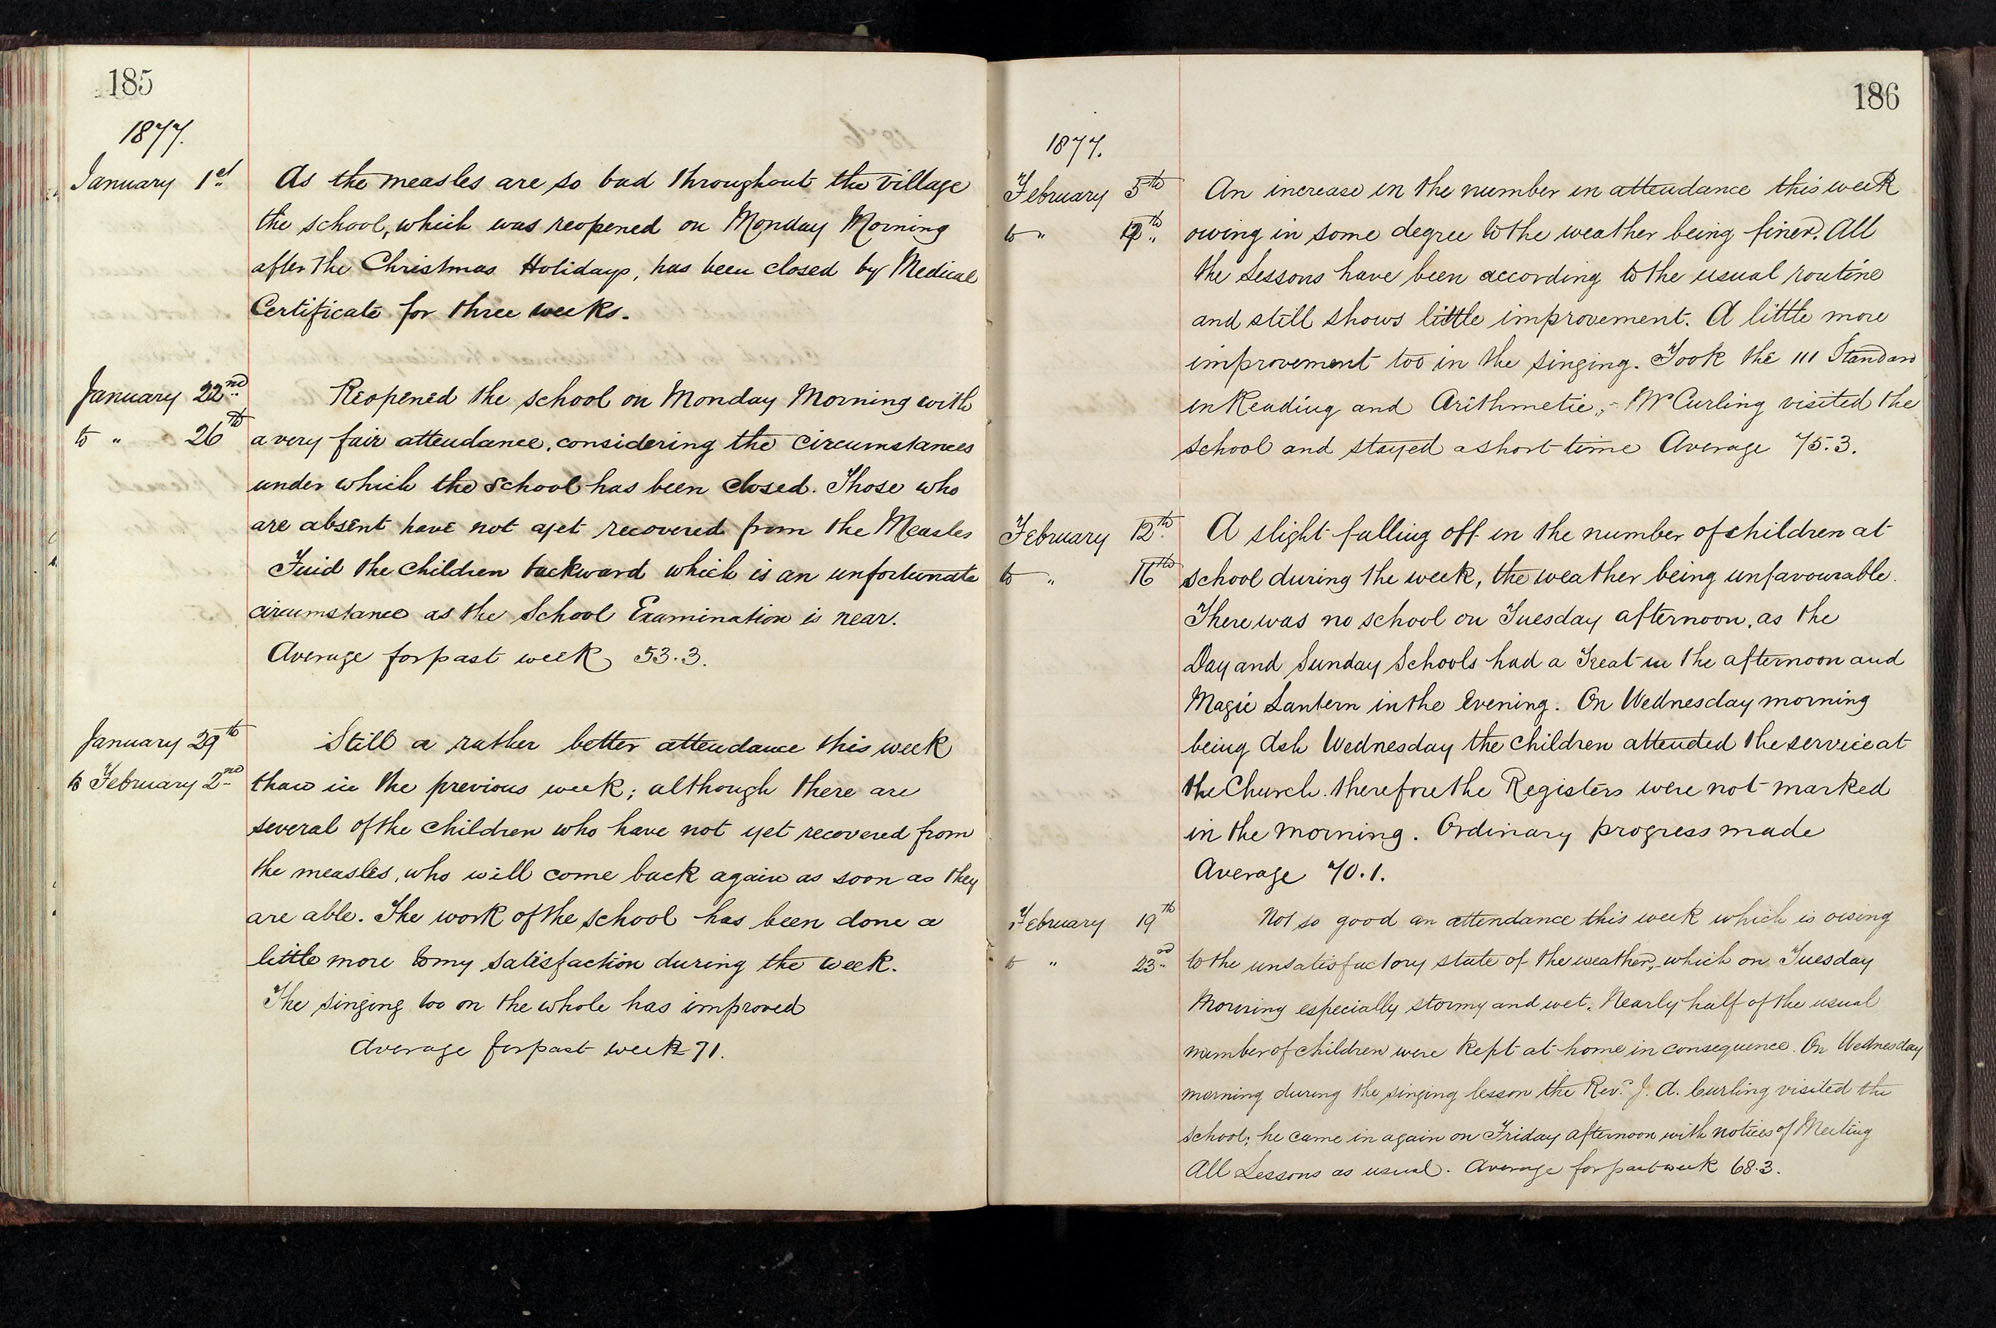 185
1877.
January 1st As the measles are so bad throughout the village
the school, which was reopened on Monday Morning
after the Christmas Holidays, has been closed by Medical
Certificate for three weeks.
January 22nd Reopened the school on Monday Morning with
to " 26th a very fair attendance, considering the circumstances
under which the school has been closed. Those who
are absent have not yet recovered from the Measles
Find the children backward which is an unfortunate
circumstance as the School Examination is near.
Average for past week 53.3.
January 29th Still a rather better attendance this week
to February 2nd than in the previous week; although there are
several of the children who have not yet recovered from
the measles, who will come back again as soon as they
are able. The work of the school has been done a
little more to my satisfaction during the week.
The singing too on the whole has improved
Average for past week 71.
186
1877.
February 5th An increase in the number in attendance this week
to " owing in some degree to the weather being finer. All
the Lessons have been according to the usual routine
and still shows little improvement. A little more
improvement too in the singing. Took the III Standard
in Reading and Arithmetic, - Mr Curling visited the
school and stayed a short time Average 75.3.
February 12th A slight falling off in the number of children at
to " 16th school during the week, the weather being unfavourable.
There was no school on Tuesday afternoon, as the
Day and Sunday Schools had a Treat in the afternoon and
Magic Lantern in the Evening. On Wednesday morning
being Ash Wednesday the children attended the service at
the Church. therefore the Registers were not marked
in the morning. Ordinary progress made
Average 70.1.
February 19th Not so good an attendance this week which is owing
to " 23rd to the unsatisfactory state of the weather, which on Tuesday
Morning especially stormy and wet. Nearly half of the usual
number of children were kept at home in consequence. On Wednesday
morning during the singing lesson the Revd. J. A. Curling visited the
school; he came in again on Friday afternoon with notices of Meeting
All Lessons as usual. Average for past week 68.3.